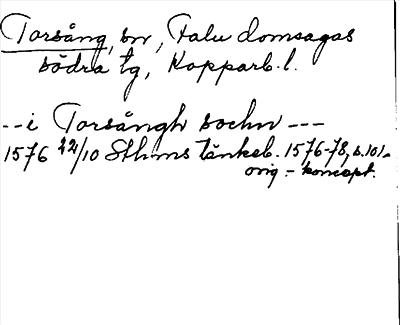 Torsång, sn, Falu domsagas
södra tg, Kopparb. l.
-- i Torsångh sochn ---
1576 22/10 Sthms tänkeb. 1576-78, s. 101.
orig. - koncept.